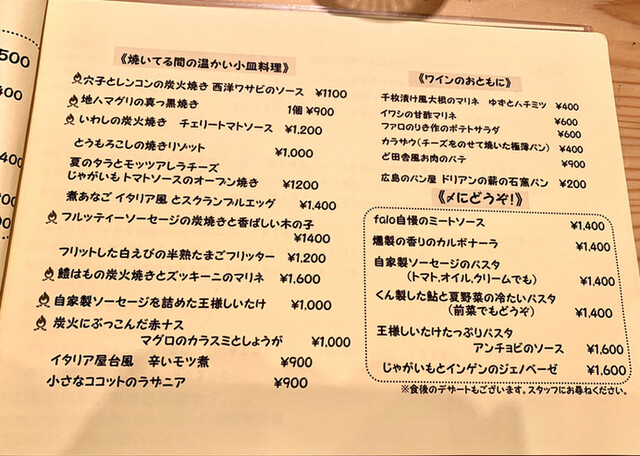 500
《焼いてる間の温かい小皿料理》
穴子とレンコンの炭火焼き 西洋ワサビのソース ¥1100
地ハマグリの真っ黒焼き 1個 ¥900
いわしの炭火焼き チェリートマトソース ¥1,200
とうもろこしの焼きリゾット ¥1,000
夏のタラとモッツアレラチーズ
じゃがいも トマトソースのオーブン焼き ¥1200
煮あなご イタリア風 とスクランブルエッグ ¥1,400
フルッティーソーセージの炭焼きと香ばしい木の子
¥1400
フリットした白えびの半熟たまごフリッター ¥1,200
鱧はもの炭火焼きとズッキーニのマリネ ¥1,600
自家製ソーセージを詰めた王様しいたけ ¥1,000
炭火にぶっこんだ赤ナス
マグロのカラスミとしょうが ¥1,000
イタリア屋台風 辛いモツ煮 ¥900
小さなココットのラザニア ¥900
《ワインのおともに》
千枚漬け風大根のマリネ ゆずとハチミツ ¥400
イワシの甘酢マリネ ¥600
ファロのりき作のポテトサラダ ¥600
カラザウ(チーズをのせて焼いた極薄パン) ¥400
ど田舎風お肉のパテ ¥900
広島のパン屋 ドリアンの薪の石窯パン ¥200
《〆にどうぞ!》
falo自慢のミートソース ¥1,400
燻製の香りのカルボナーラ ¥1,400
自家製ソーセージのパスタ
(トマト,オイル,クリームでも) ¥1,400
くん製した鮎と夏野菜の冷たいパスタ
(前菜でもどうぞ) ¥1,400
王様しいたけたっぷりパスタ
アンチョビのソース ¥1,600
じゃがいもとインゲンのジェノベーゼ ¥1,600
※食後のデザートもございます。スタッフにお尋ねください。